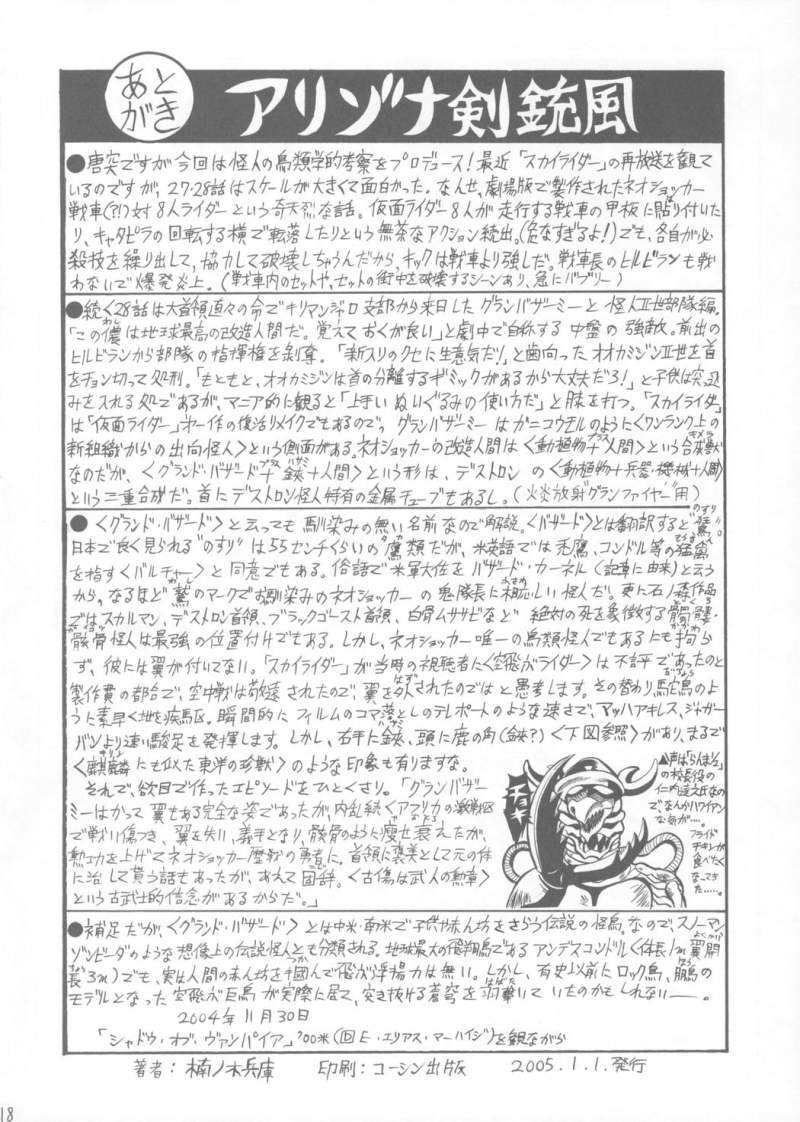 あとがき
アリゾナ剣銃風
●唐突ですが今回は怪人の鳥類学的考察をプロデュース！最近「スカイライダー」の再放送を観て
いるのですが、27・28話はスケールが大きくて面白かった。なんせ、劇場版で製作されたネオショッカー
戦車(?!)対8人ライダーという奇天烈な話。仮面ライダー8人が走行する戦車の甲板に貼り付いた
り、キャタピラの回転する横で転落したりという無茶なアクション続出。(危なすぎるよ！)でも、各自が必
殺技を繰り出して、協力して破壊しちゃうんだから、キックは戦車より強しだ。戦車長のヒルビランも戦
わないで爆発炎上。(戦車内のセットや、セットの街中を破壊するシーンあり、急にバブリー)
●続く28話は大首領直々の命でキリマンジャロ支部から来日したグランバザーミーと怪人Ⅱ世部隊編。
「この儂は地球最高の改造人間だ。覚えておくが良い」と劇中で自称する中盤の強敵。前出の
ヒルビランから部隊の指揮権を剥奪。「新入りのクセに生意気だ！」と歯向ったオオカミジンⅡ世を首
をチョン切って処刑。「もともと、オオカミジンは首の分離するギミックがあるから大丈夫だろ！」と子供は突っ込
みを入れる処であるが、マニア的に観ると「上手いぬいぐるみの使い方だ」と膝を打つ。「スカイライダー」
は「仮面ライダー」オ一作の復活リメイクでもあるので、グランバザーミーはガニコウモルのように<ワンランク上の
新組織からの出向怪人>という側面がある。ネオショッカーの改造人間は<動植物+人間>という合成獣
なのだが、<グランド・バザード+鋏+人間>という形は、デストロンの<動植物+兵器・機械+人間>
という三重合成だ。首にデストロン怪人特有の金属チューブもあるし。(火炎放射“グランファイヤー”用)
●<グランド・バザード>と云っても馴染みの無い名前なので解説。<バザード>とは翻訳すると“鵟”。
日本で良く見られる“のすり”は55センチくらいの鷹類だが、米英語では禿鷹、コンドル等の猛禽
を指す<バルチャー>と同意でもある。俗語で米軍大佐をバザード・カーネル(記章に由来)と云う
から、なるほど鷲のマークでお馴染みのネオショッカーの鬼隊長に相応しい怪人だ。更に石ノ森作品
ではスカルマン、デストロン首領、ブラックゴースト首領、白骨ムササビなど絶対の死を象徴する髑髏・
骸骨怪人は最強の位置付けでもある。しかし、ネオショッカー唯一の鳥類怪人でもあるにも拘ら
ず、彼には翼が付いてない。「スカイライダー」が当時の視聴者に<空飛ぶライダー>は不評であったのと
製作費の都合で、空中戦は敬遠されたので、翼を外されたのではと愚考します。その替わり駝鳥のよ
うに素早く地を疾駆。瞬間的にフィルムのコマ落としのテレポートのような速さで、マッハアキレス、ジャガー
バンより速い駿足を発揮します。しかし、右手に鋏、頭に鹿の角(鋏?)<下図参照>があり、まるで
<麒麟にも似た東洋の珍獣>のような印象も有りますな。
それで、欲目で作ったエピソードをひとくさり。「グランバザー
ミーはかつて翼もある完全な姿であったが、内乱続くアフリカの激戦区
で戦い傷つき、翼を失い、義手となり、骸骨のように痩せ衰えたが、
勲功を上げてネオショッカー歴戦の勇者に。首領に褒美として元の体
に治して貰う話もあったが、あえて固辞。<古傷は武人の勲章>
という古武士的信念があるからだ。」
▲声は「らんま½」
の校長役の
仁内達之氏なの
でなんかハワイアン
な気が…。
フライド
チキンが
食べたく
なってき
た……。
チョキ
●補足だが、<グランド・バザード>とは中米・南米で子供や赤ん坊をさらう伝説の怪鳥。なので、スノーマン
ゾンビーダのような想像上の伝説怪人とも分類される。地球最大の飛翔鳥であるアンデスコンドル<体長1m翼開
長3m>でも、実は人間の赤ん坊を掴んで飛ぶ浮揚力は無い。しかし、有史以前にロック鳥、鵬の
モデルとなった空飛ぶ巨鳥が実際に居て、突き抜ける蒼穹を羽撃いていたのかもしれない――。
2004年11月30日
「シャドウ・オブ・ヴァンパイア」'00米(回E・エリアス・マーハイジ)を観ながら
著者：楠ノ木兵庫 印刷：コーシン出版 2005.1.1.発行
18